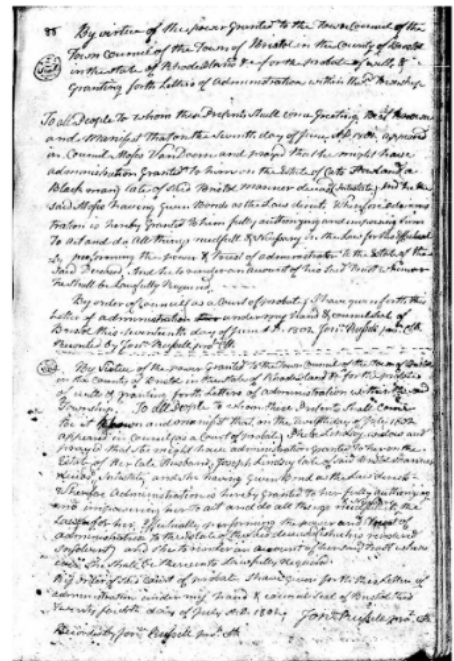 88 By virtue of the power Granted to the Town Council of the
Town Council of the Town of Bristol in the County of Bristol
in the State of Rhode Island &c for the probate of wills, &
Granting forth Letters of Administration within the Township
To all People to whom these Presents Shall come Greeting Be it known
and manifest that on the Seventh day of June AD 1802, appeared
in Council Moses VanDoorn and prayed that he might have
administration Granted to him on the Estate of Cato a
Black man late of Bristol manner deceased Intestate, and he the
said Moses having given Bonds as the Law directs Wherefore adminis
tration is hereby Granted to him fully authorizing and impowering him
To act and do all things needfull & Necessary in the Law for the Effectual
ly performing the power & Trust of administrator to the Estate of the
said Deceased, And he to render an account of his said Trust whenever
he shall be Lawfully Required
By order of Council as a Court of probate, I have given forth this
Letter of administration under my Hand & Council Seal of
Bristol this Seventeenth day of June AD. 1802, Jonn. Russell pro. Clk
Recorded by Jonn. Russell pro. Clk
By Virtue of the power Granted to the Town Council of the Town of Bristol
in the County of Bristol in the State of Rhode Island &c for the probate
of wills & granting forth Letters of Administration within the said
Township. To all People to whom these Presents Shall Come
Be it known and manifest that on the day of July 1802
appeared in Council (as a Court of probate) Phebe Lindsey widow and
prayed that She might have administration granted to her on the
Estate of her late Husband, Joseph Lindsey late of said Bristol
deceased Intestate, and she having given Bond as the Law directs
Wherefore Administration is hereby Granted to her fully authorizing
and impowering her to act and do all things needfull in the
Law for her Effectually performing the power and Trust of
administration to the Estate of the said deceased (which is rendered
insolvent) and she to render an account of her said Trust when
ever she shall be thereunto Lawfully Required.
By order of the Court of probate I have given forth this Letter of
administration under my hand & Council Seal of Bristol this
Twenty day of July AD. 1802, Jonn. Russell pro. Clk
Recorded by Jonn. Russell pro. Clk